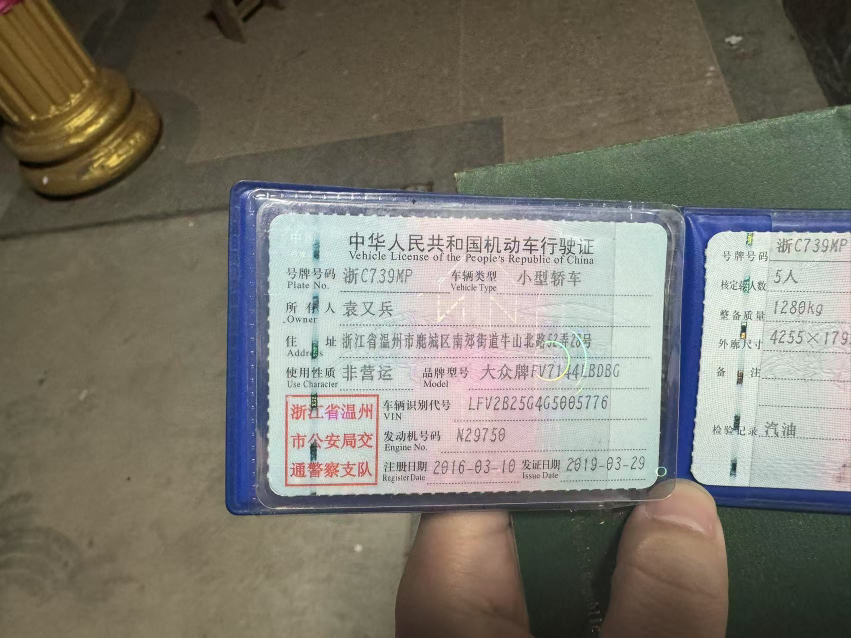 中华人民共和国机动车行驶证
Vehicle License of the People's Republic of China
号牌号码 浙C739MP 车辆类型 小型轿车
Plate No. Vehicle Type
所有人 袁又兵
Owner
住址 浙江省温州市鹿城区南郊街道牛山北路52弄28号
Address
使用性质 非营运 品牌型号 大众牌FV7144LBDBG
Use Character Model
浙江省温州
市公安局交
通警察支队
车辆识别代号 LFV2B25G4G5005776
VIN
发动机号码 N29750
Engine No.
注册日期 2016-03-10 发证日期 2019-03-29
Register Date Issue Date
号牌号码 浙C739MP
核定载人数 5人
整备质量 1280kg
外廓尺寸 4255×179
备注
检验记录 汽油